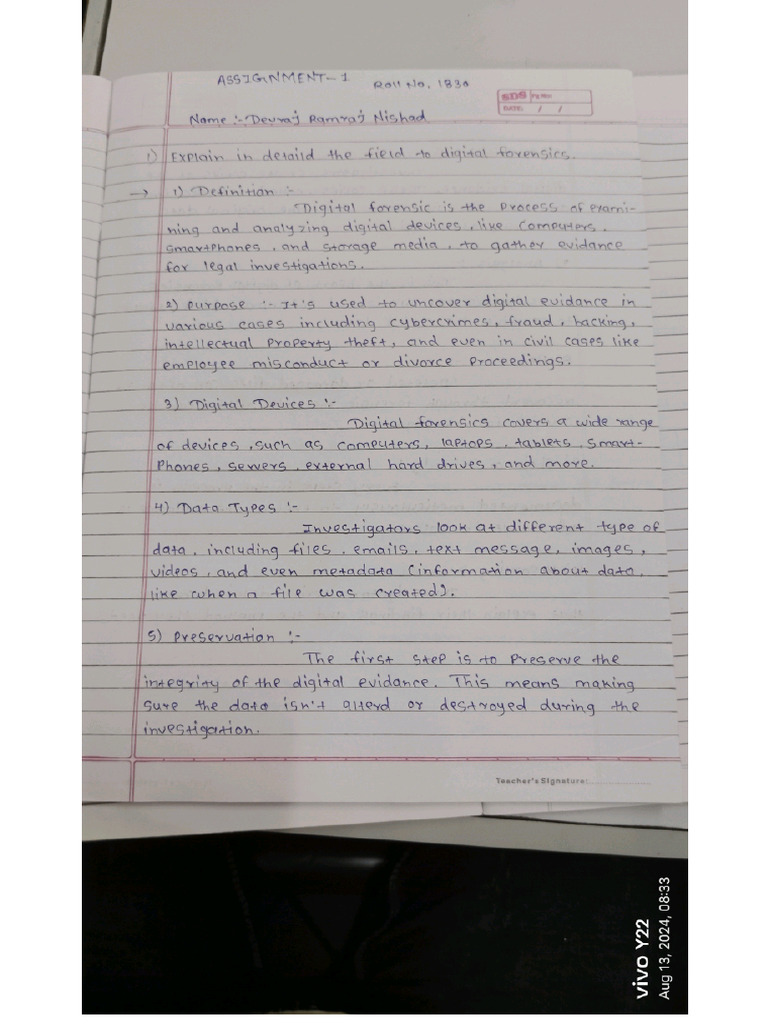 ASSIGNMENT-1 Roll No. 1830
SDS PAGE:
DATE: / /
Name :- Devraj Ramraj Nishad
1) Explain in detaild the field to digital forensics.
→ 1) Definition :-
Digital forensic is the process of exami-
ning and analyzing digital devices, like computers,
smartphones, and storage media, to gather evidence
for legal investigations.
2) purpose :- It's used to uncover digital evidence in
various cases including cybercrimes, fraud, hacking,
intellectual property theft, and even in civil cases like
employee misconduct or divorce proceedings.
3) Digital Devices :-
Digital forensics covers a wide range
of devices, such as computers, laptops, tablets, smart-
phones, servers, external hard drives, and more.
4) Data Types :-
Investigators look at different type of
data, including files, emails, text message, images,
videos, and even metadata (information about data,
like when a file was created).
5) Preservation :-
The first step is to preserve the
integrity of the digital evidence. This means making
sure the data isn't alterd or destroyed during the
investigation.
Teacher's Signature:
vivo Y22
Aug 13, 2024, 08:33